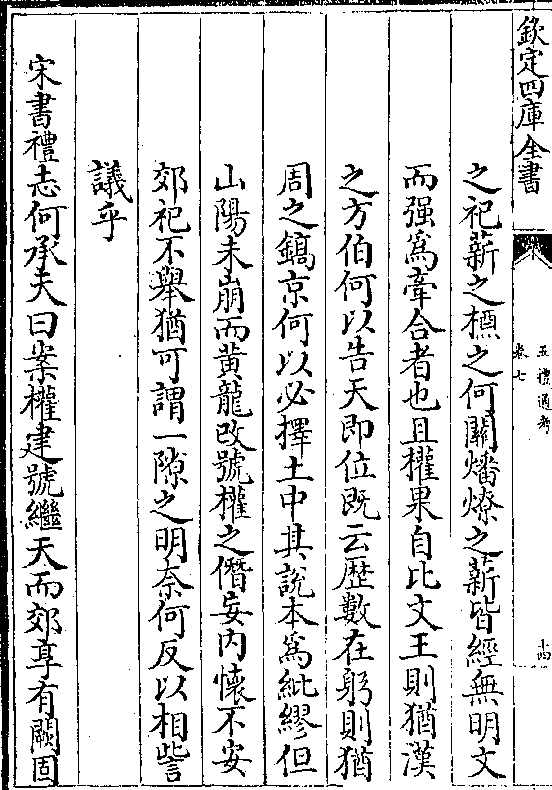 欽定四庫全書
五禮通考
卷七
十四
之祀薪之槱之何關燔燎之薪皆經無明文
而强為牽合者也且權果自比文王則猶漢
之方伯何以告天即位既云歴數在躬則猶
周之鎬京何以必擇土中其說本為紕繆但
山陽未崩而黄龍改號權之僭妄内懷不安
郊祀不舉猶可謂一隙之明奈何反以相訾
議乎
宋書禮志何承天曰案權建號繼天而郊享有闕固